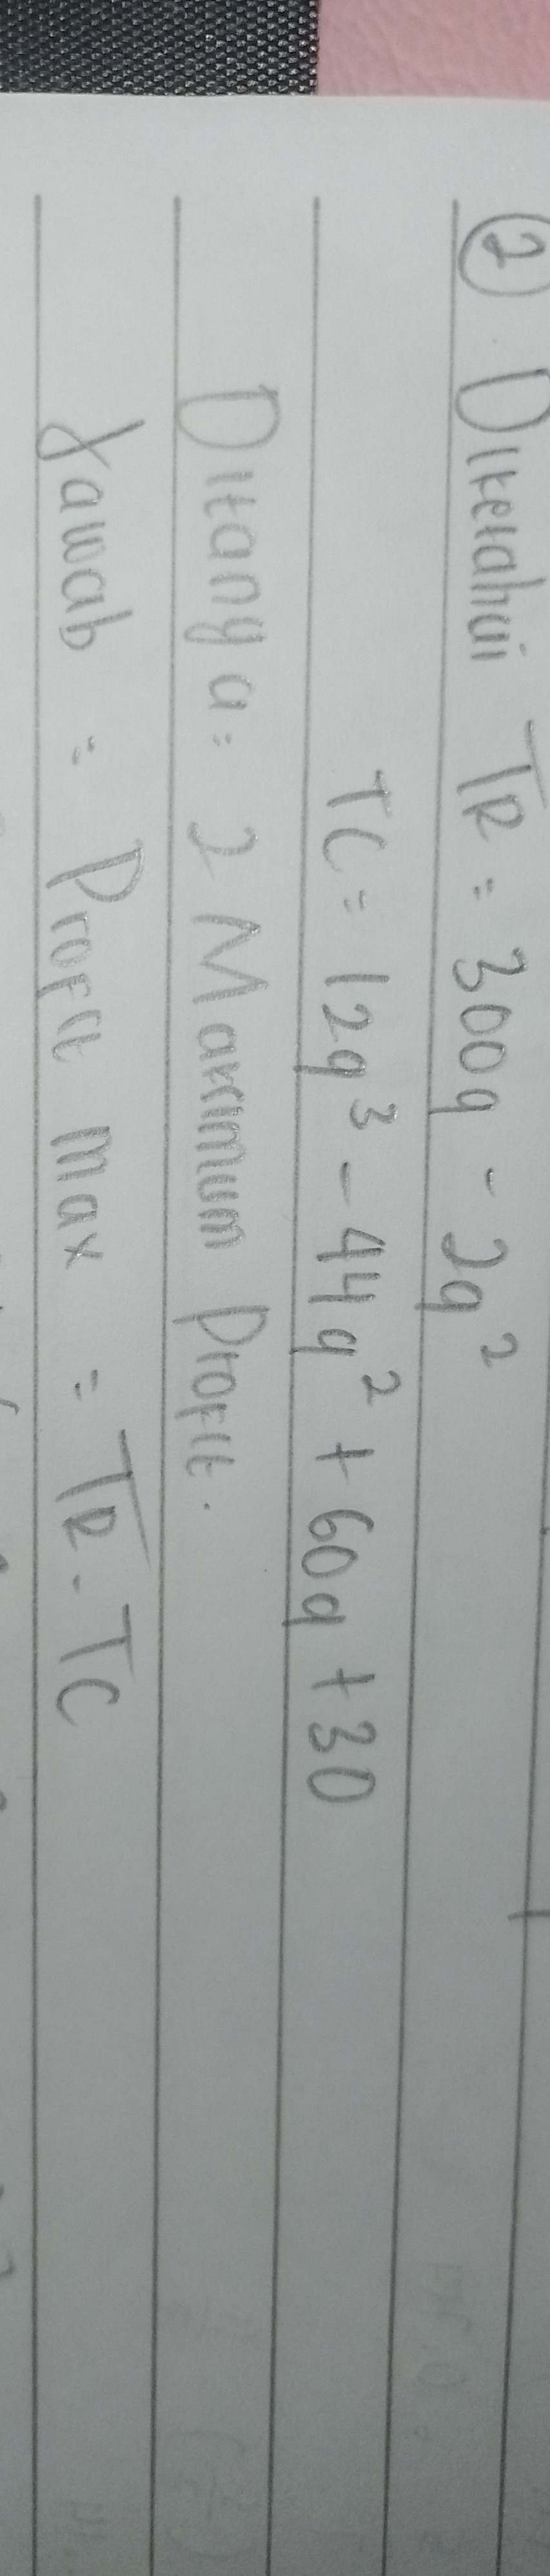 ② Diketahui TR = 300q - 2q²
TC = 12q³ - 44q² + 60q + 30
Ditanya = 2 Maksimum Profit.
Jawab = Profit max = TR - TC